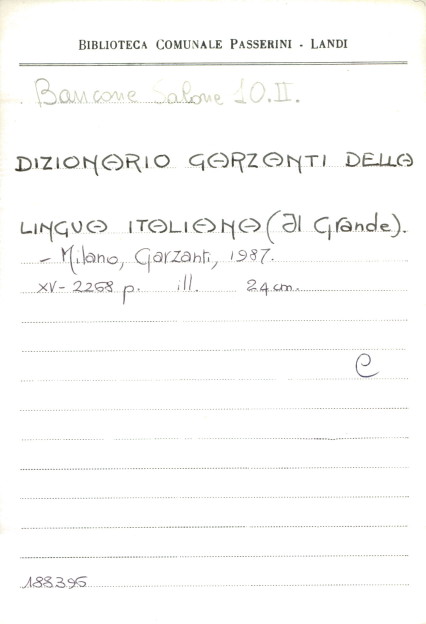 BIBLIOTECA COMUNALE PASSERINI - LANDI
Bancone Salone 10.II.
DIZIONARIO GARZANTI DELLA
LINGUA ITALIANA (Il Grande).
- Milano, Garzanti, 1987.
XV- 2268 p. ill. 24 cm.
C
188395